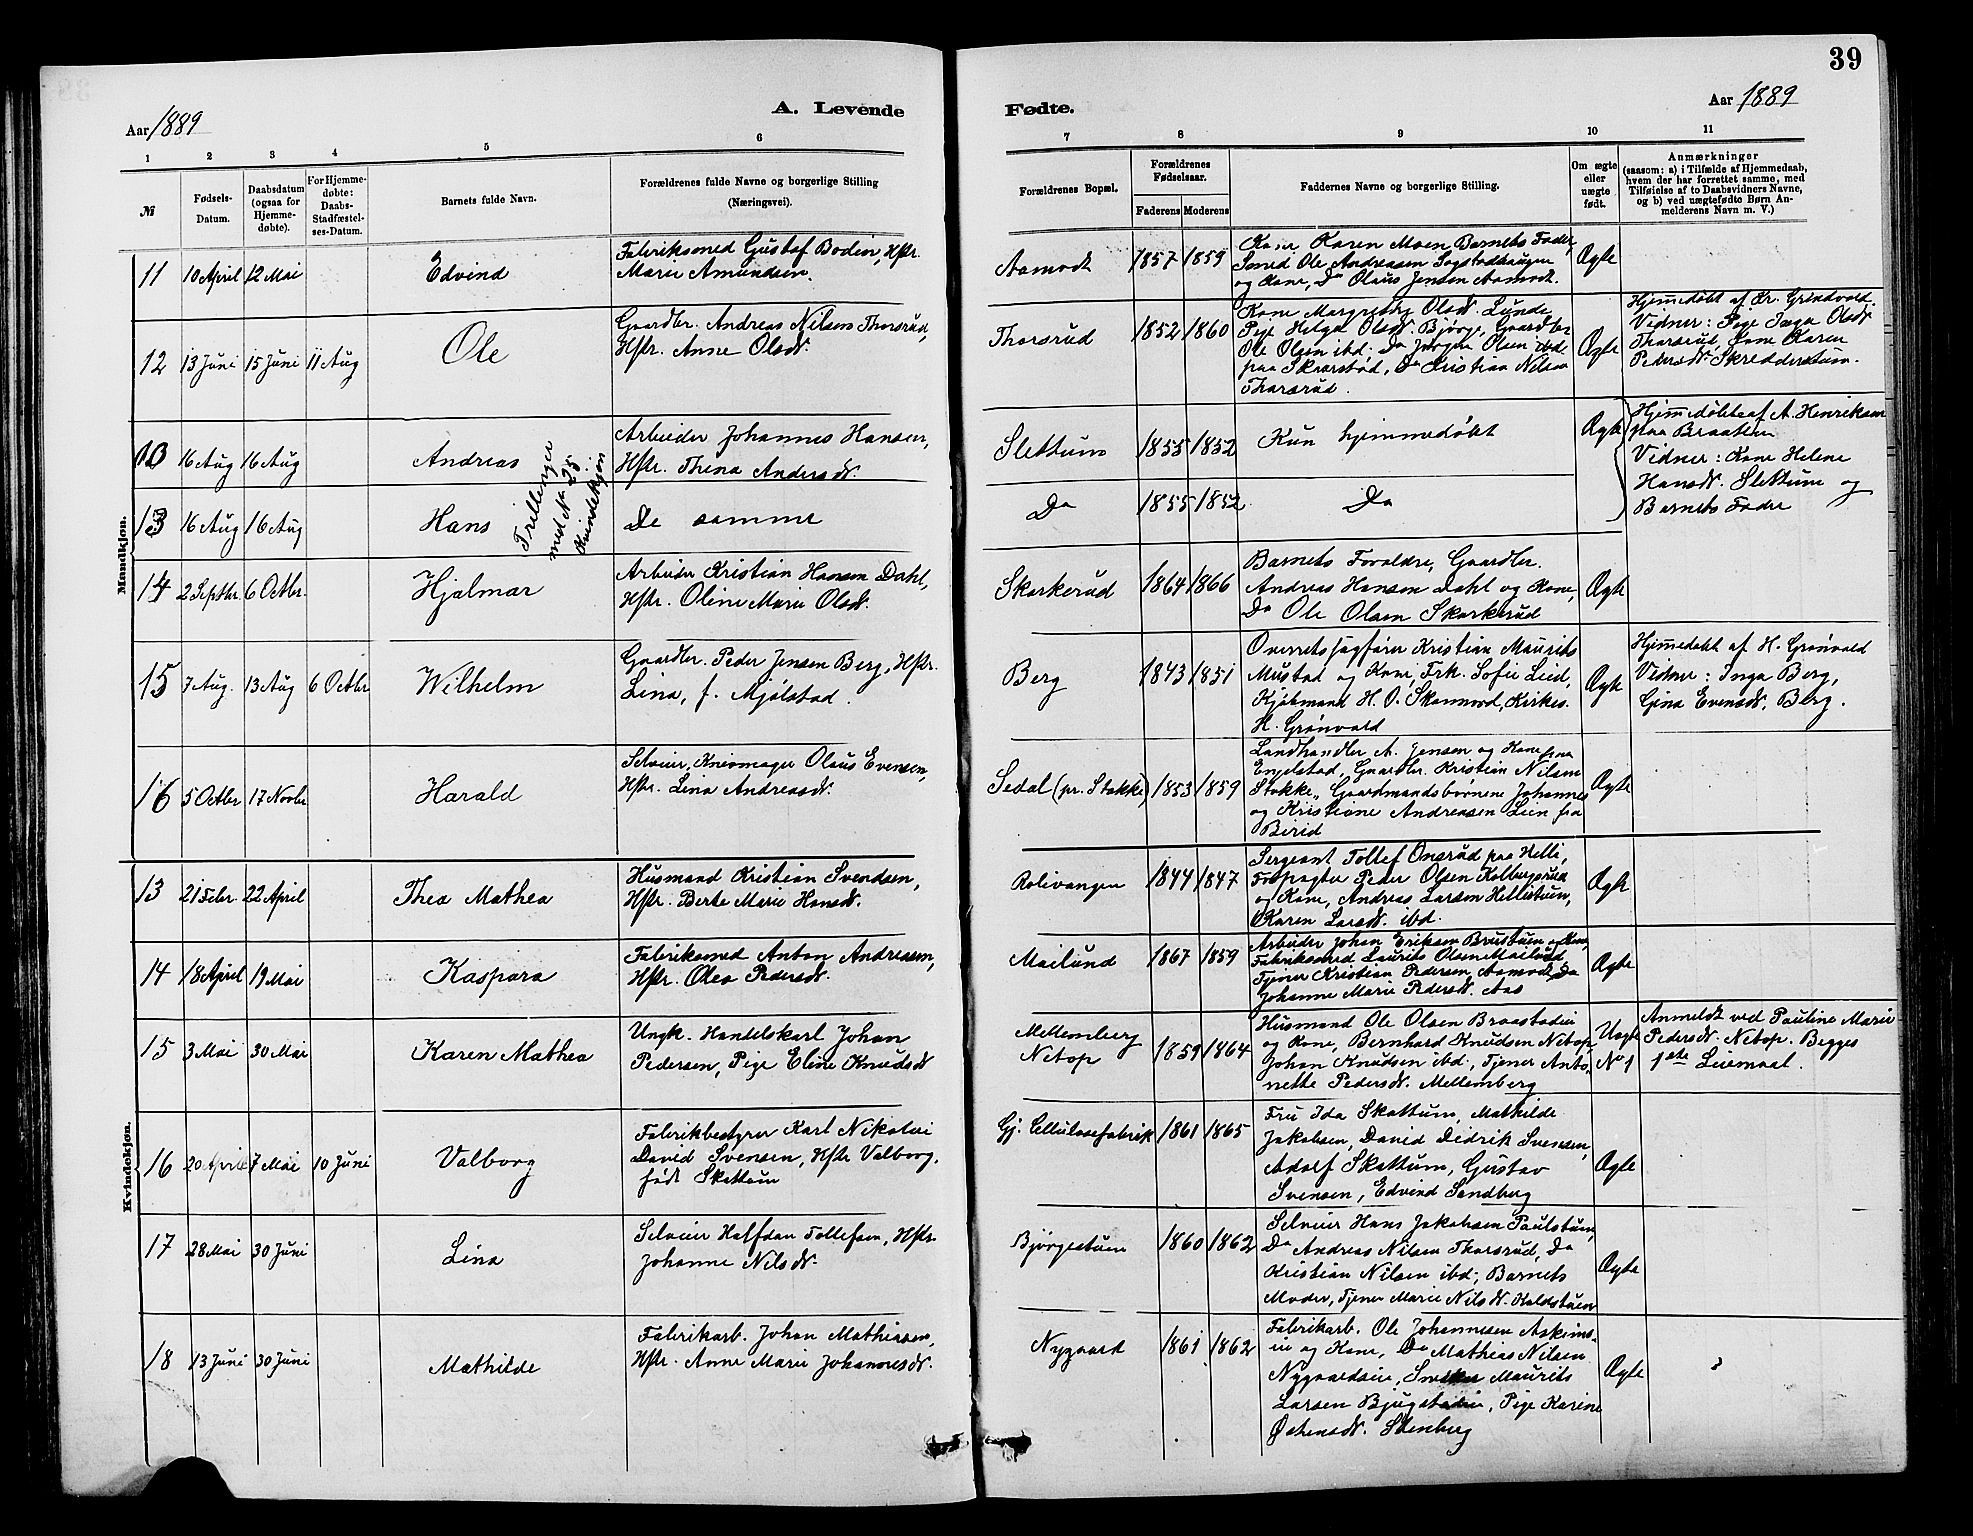 39
Aar 1889
A. Levende
Fødte.
Aar 1889
1 2 3 4 5 6 7 8 9 10 11
№
Fødsels-
Datum.
Daabsdatum
(ogsaa for
Hjemme-
døbte).
For Hjemme-
døbte:
Daabs-
Stadfæstel-
ses-Datum.
Barnets fulde Navn.
Forældrenes fulde Navne og borgerlige Stilling
(Næringsvei).
Forældrenes Bopæl.
Forældrenes
Fødselsaar.
Faderens Moderens
Faddernes Navne og borgerlige Stilling.
Om ægte
eller
uægte
født.
Anmærkninger
(saasom: a) i Tilfælde af Hjemmedaab,
hvem der har forrettet samme, med
Tilføielse af to Daabsvidners Navne,
og b) ved uægtefødte Børn An-
melderens Navn m. V.)
Mandkjøn.
11 10 April 12 Mai Edvind
Fabriksmed Gustaf Bodin, Hstr.
Marie Amundsen.
Aamodt 1857 1859
Kone Karen Moen Barnets Fader,
Smed Ole Andreassen Sogstadhaugen
og Kone, Do Olaus Jensen Aamodt.
Ægte
12 13 Juni 15 Juni 11 Aug Ole
Gaardbr. Andreas Nilsen Thorsrud,
Hstr. Anne Olsdt.
Thorsrud 1852 1860
Kone Margrethe Olsdt. Lunde
Pige Helga Olsdt. Bjørge, Gaardbr
Ole Olsen ibd, Do Jørgen Olsen ibd.
paa Skrarstad, Do Kristian Nilsen
Thorsrud.
Ægte
Hjemmedøbt af Kr. Grindvold.
Vidner: Pige Inga Olsdt
Thorsrud, Kone Karen
Pedersdt Skredderstum.
13 16 Aug 16 Aug Andreas
Arbeider Johannes Hansen,
Hstr. Thina Andersdt.
Slettum 1855 1852
Kun hjemmedøbt
Ægte
Hjemmedøbte af A. Henriksen
paa Braaten
Vidner: Kone Helene
Hansdt. Slettum og
Barnets Fader
13 16 Aug 16 Aug Hans
Trillinger
med No 25
Kvindekjøn
De samme
Do 1855 1852 Do
14 2 Septbr. 6 Octbr. Hjalmar
Arbeider Kristian Hansen Dahl,
Hstr. Oline Marie Olsdt.
Skarkerud 1864 1866
Barnets Forældre, Gaardbr.
Andreas Hansen Dahl og Kone,
Do Ole Olsen Skarkerud
Ægte
15 7 Aug. 13 Aug 6 Octbr Wilhelm
Gaardbr. Peder Jensen Berg, Hstr.
Lina, f. Mjølstad.
Berg 1843 1851
Overretssagfører Kristian Maurits
Mustad og Kone, Frk. Sofie Lied,
Kjøbmand H. O. Skonnord, Kirkes.
H. Grønvold
Ægte
Hjemmedøbt af H. Grønvold
Vidner: Inga Berg,
Gina Evensdt, Berg.
16 5 Octbr 17 Novbr Harald
Selveier, Knivmager Olaus Evensen,
Hstr. Lina Andreasdt.
Sedal (pr. Stokke) 1853 1859
Landhandler A. Jensen og Kone fra
Engelstad, Gaardbr. Kristian Nilsen
Stokke, Gaardmandsbørnene Johannes
og Kristiane Andreasen Lien fra
Birid
Ægte
Kvindekjøn.
13 21 Febr. 22 April Thea Mathea
Husmand Kristian Svendsen,
Hstr. Berte Marie Hansdt.
Rolivangen 1844 1847
Sergeant Tollef Onsrud paa Helli,
Forpagter Peder Olsen Kolbergsrud
og Kone, Andreas Larsen Hellistuen,
Karen Larsdt. ibd.
Ægte
14 18 April 19 Mai Kaspara
Fabriksmed Anton Andreasen,
Hstr. Olea Pedersdt.
Mailund 1867 1859
Arbeider Johan Eriksen Brustuen og Kone
Fabriksmed Laurits Olsen Mailund
Tjener Kristian Pedersen Aamodt, Do
Johanne Marie Pedersdt. Aas
Ægte
15 3 Mai 30 Mai Karen Mathea
Ungk. Handelskarl Johan
Pedersen, Pige Eline Knudsdt
Mellemberg
Netop
1859 1864
Husmand Ole Olsen Braastadei
og Kone, Bernhard Knudsen Netop
Johan Knudsen ibd, Tjener Anto-
nette Pedersdt. Mellemberg
Uægte
No 1
Anmeldt ved Pauline Marie
Pedersdt. Netop. Begges
1ste Leiemaal.
16 20 April 7 Mai 10 Juni Valborg
Fabrikbestyrer Karl Nikolai
David Svensen, Hstr Valborg,
født Skattum
Gj. Cellulosefabrik 1861 1865
Fru Ida Skattum, Mathilde
Jakobsen, David Didrik Svensen,
Adolf Skattum, Gustav
Svensen, Edvind Sandberg
Ægte
17 28 Mai 30 Juni Lina
Selveier Halfdan Tollefsen, Hstr.
Johanne Nilsdt.
Bjørgestuen 1860 1862
Selveier Hans Jakobsen Paulstuen,
Do Andreas Nilsen Thorsrud, Do
Kristian Nilsen ibd, Barnets
Moder, Tjener Marie Nilsdt. Koldstuen
Ægte
18 13 Juni 30 Juni Mathilde
Fabrikarb. Johan Mathiesen,
Hstr. Anne Marie Johannesdt.
Nygaard 1861 1862
Fabrikarb. Ole Johannesen Askims-
ei og Kone, Do Mathias Nilsen
Nygaardsei, Maurits
Larsen Bjugstadei, Pige Karine
Østensdt. Stenberg
Ægte